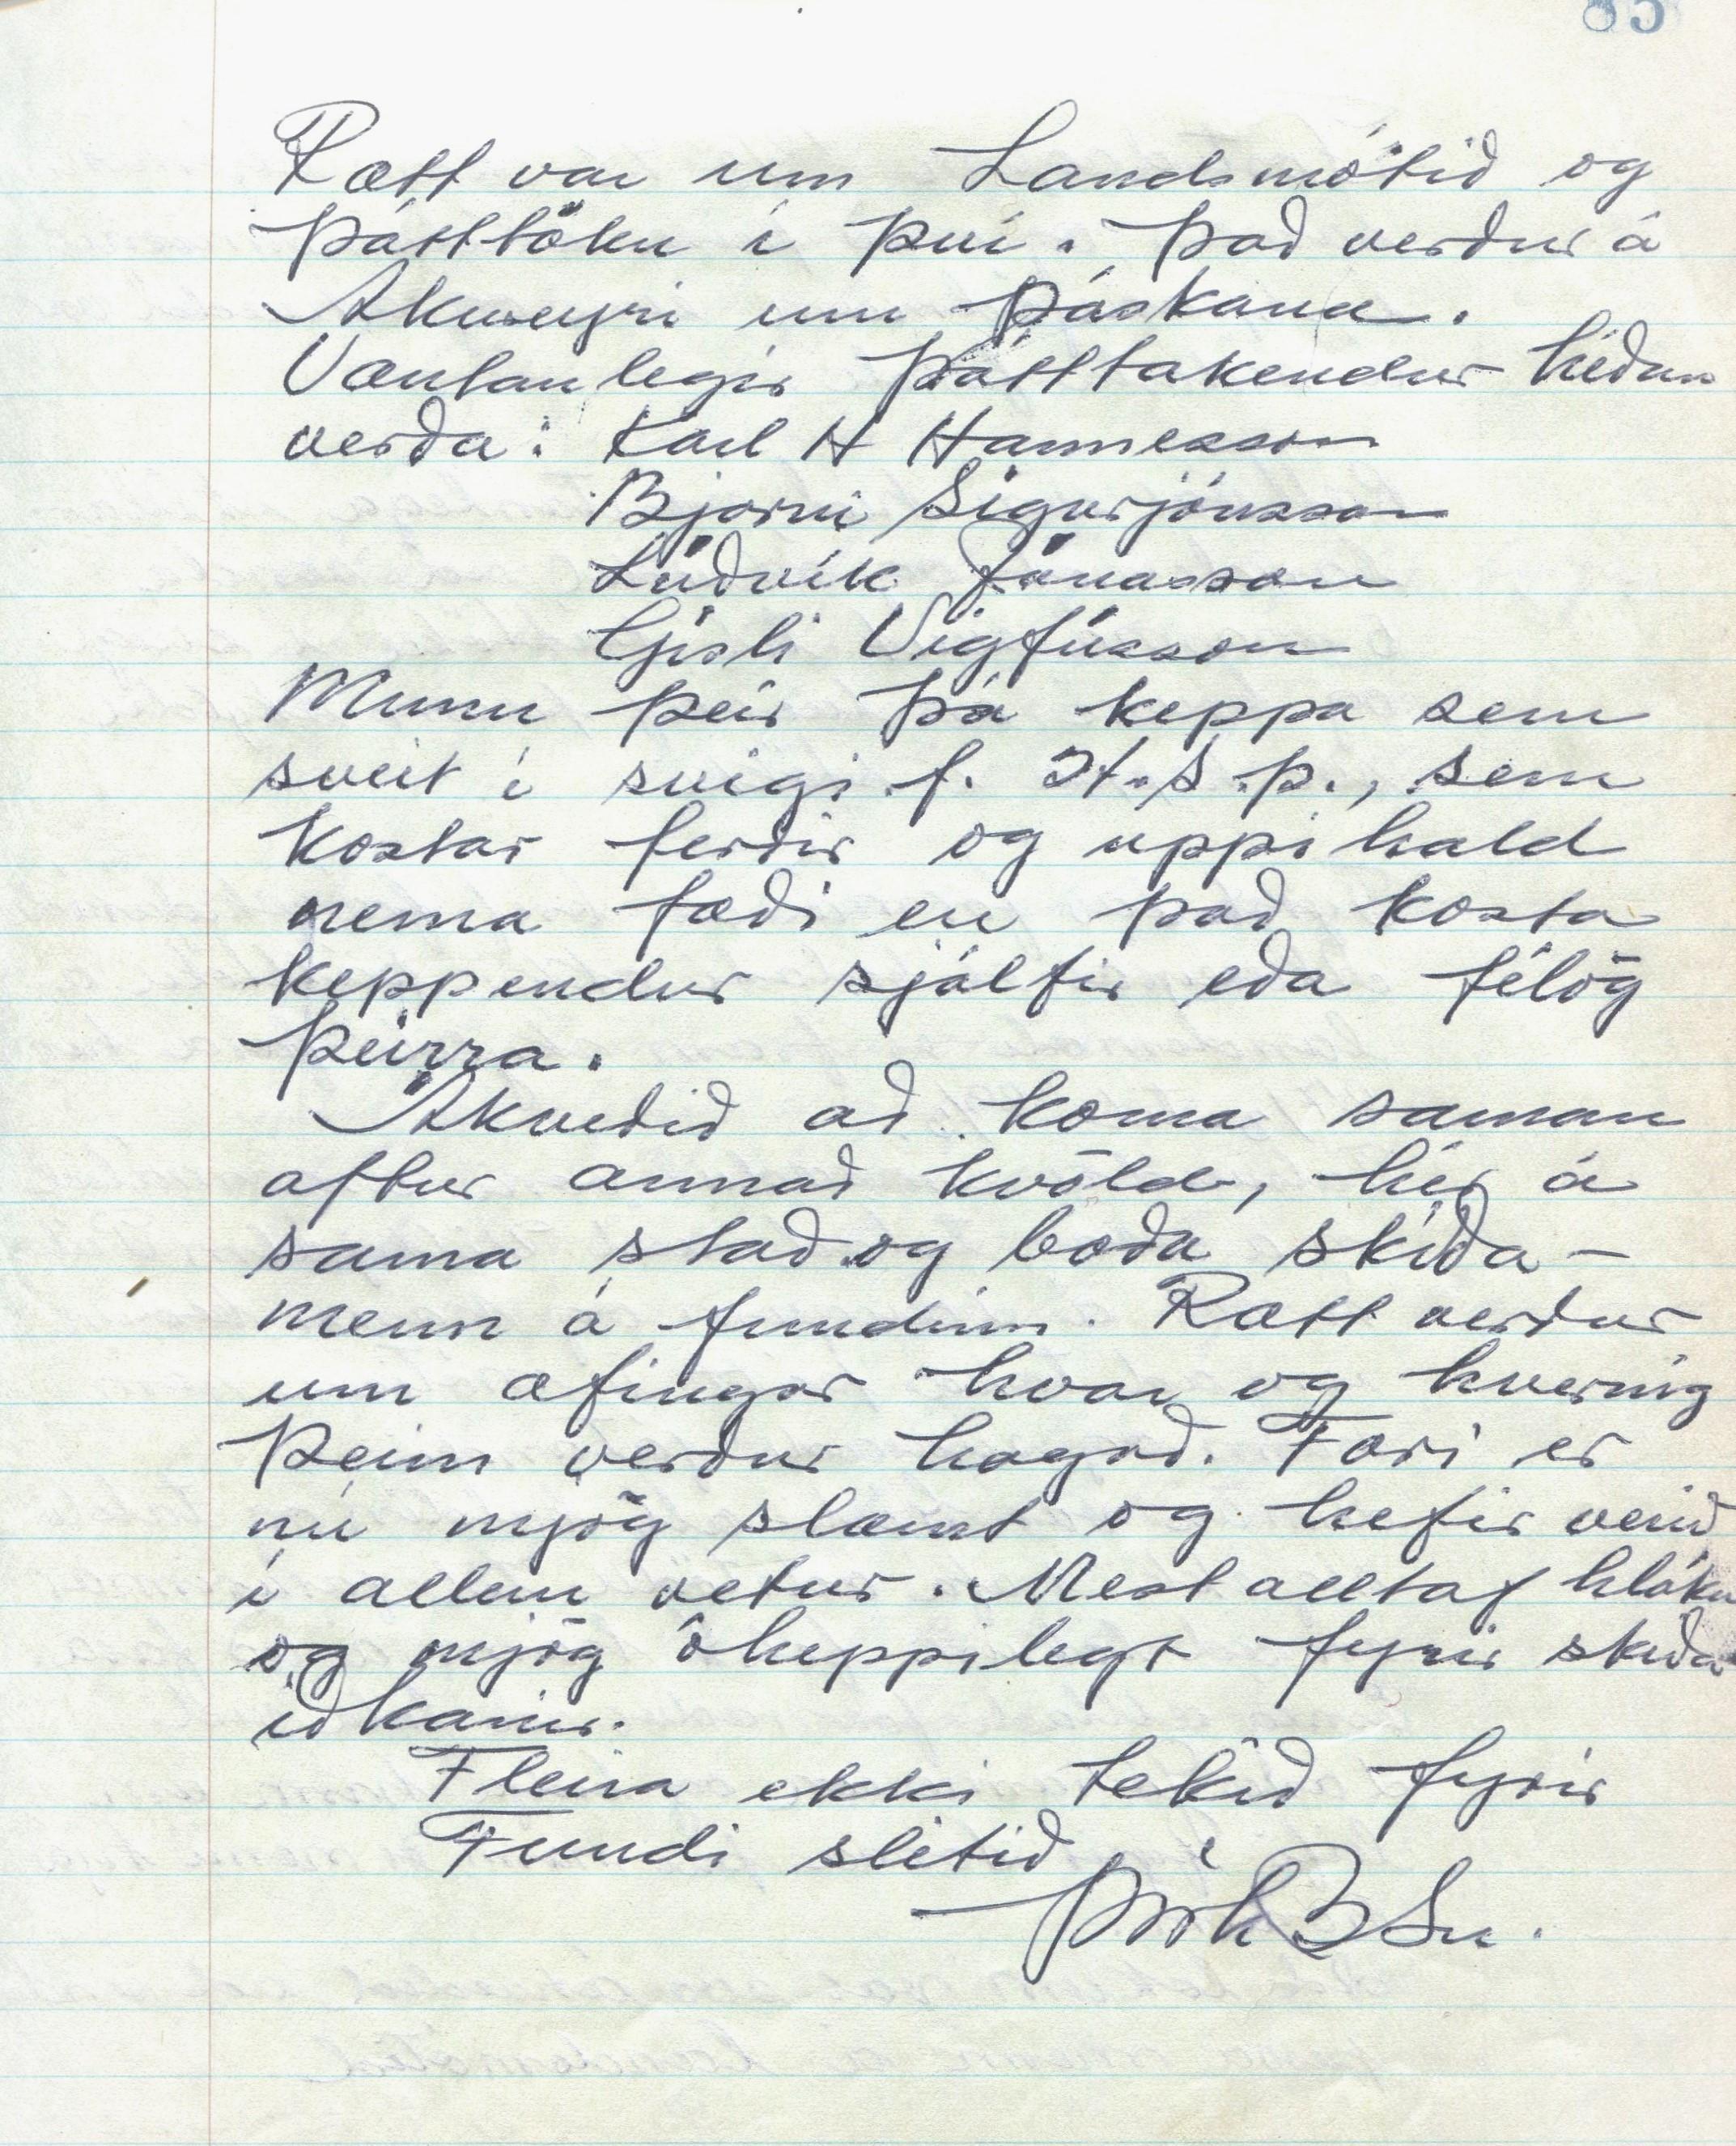 85
Rætt var um Landsmótið og
þátttöku í því. Það verður á
Akureyri um páskana.
Væntanlegir þátttakendur héðan
verða: Karl H Hannesson
Bjarni Sigurjónsson
Lúðvík Jónasson
Gísli Vigfússon
Munu þeir þá keppa sem
sveit í svigi f. H.S.þ., sem
kostar ferðir og uppihald
nema fæði en það kosta
keppendur sjálfir eða félög
þeirra.
Ákveðið að koma saman
aftur annað kvöld, hér á
sama stað og boða skíða-
menn á fundinn. Rætt verður
um æfingar hvar og hvernig
þeim verður hagað. Færi er
nú mjög slæmt og hefir verið
í allan vetur. Mest alltaf hláku
og mjög óheppilegt fyrir skíða
iðkanir.
Fleira ekki tekið fyrir
Fundi slitið